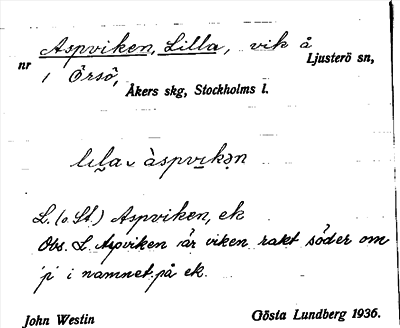 Aspviken, Lilla, vik å
nr Ljusterö sn,
i Örsö,
Åkers skg, Stockholms l.
lıla ˅ àspvıkən
L. (o St.) Aspviken, ek
Obs. L. Aspviken är viken rakt söder om
'p' i namnet på ek.
John Westin Gösta Lundberg 1936.